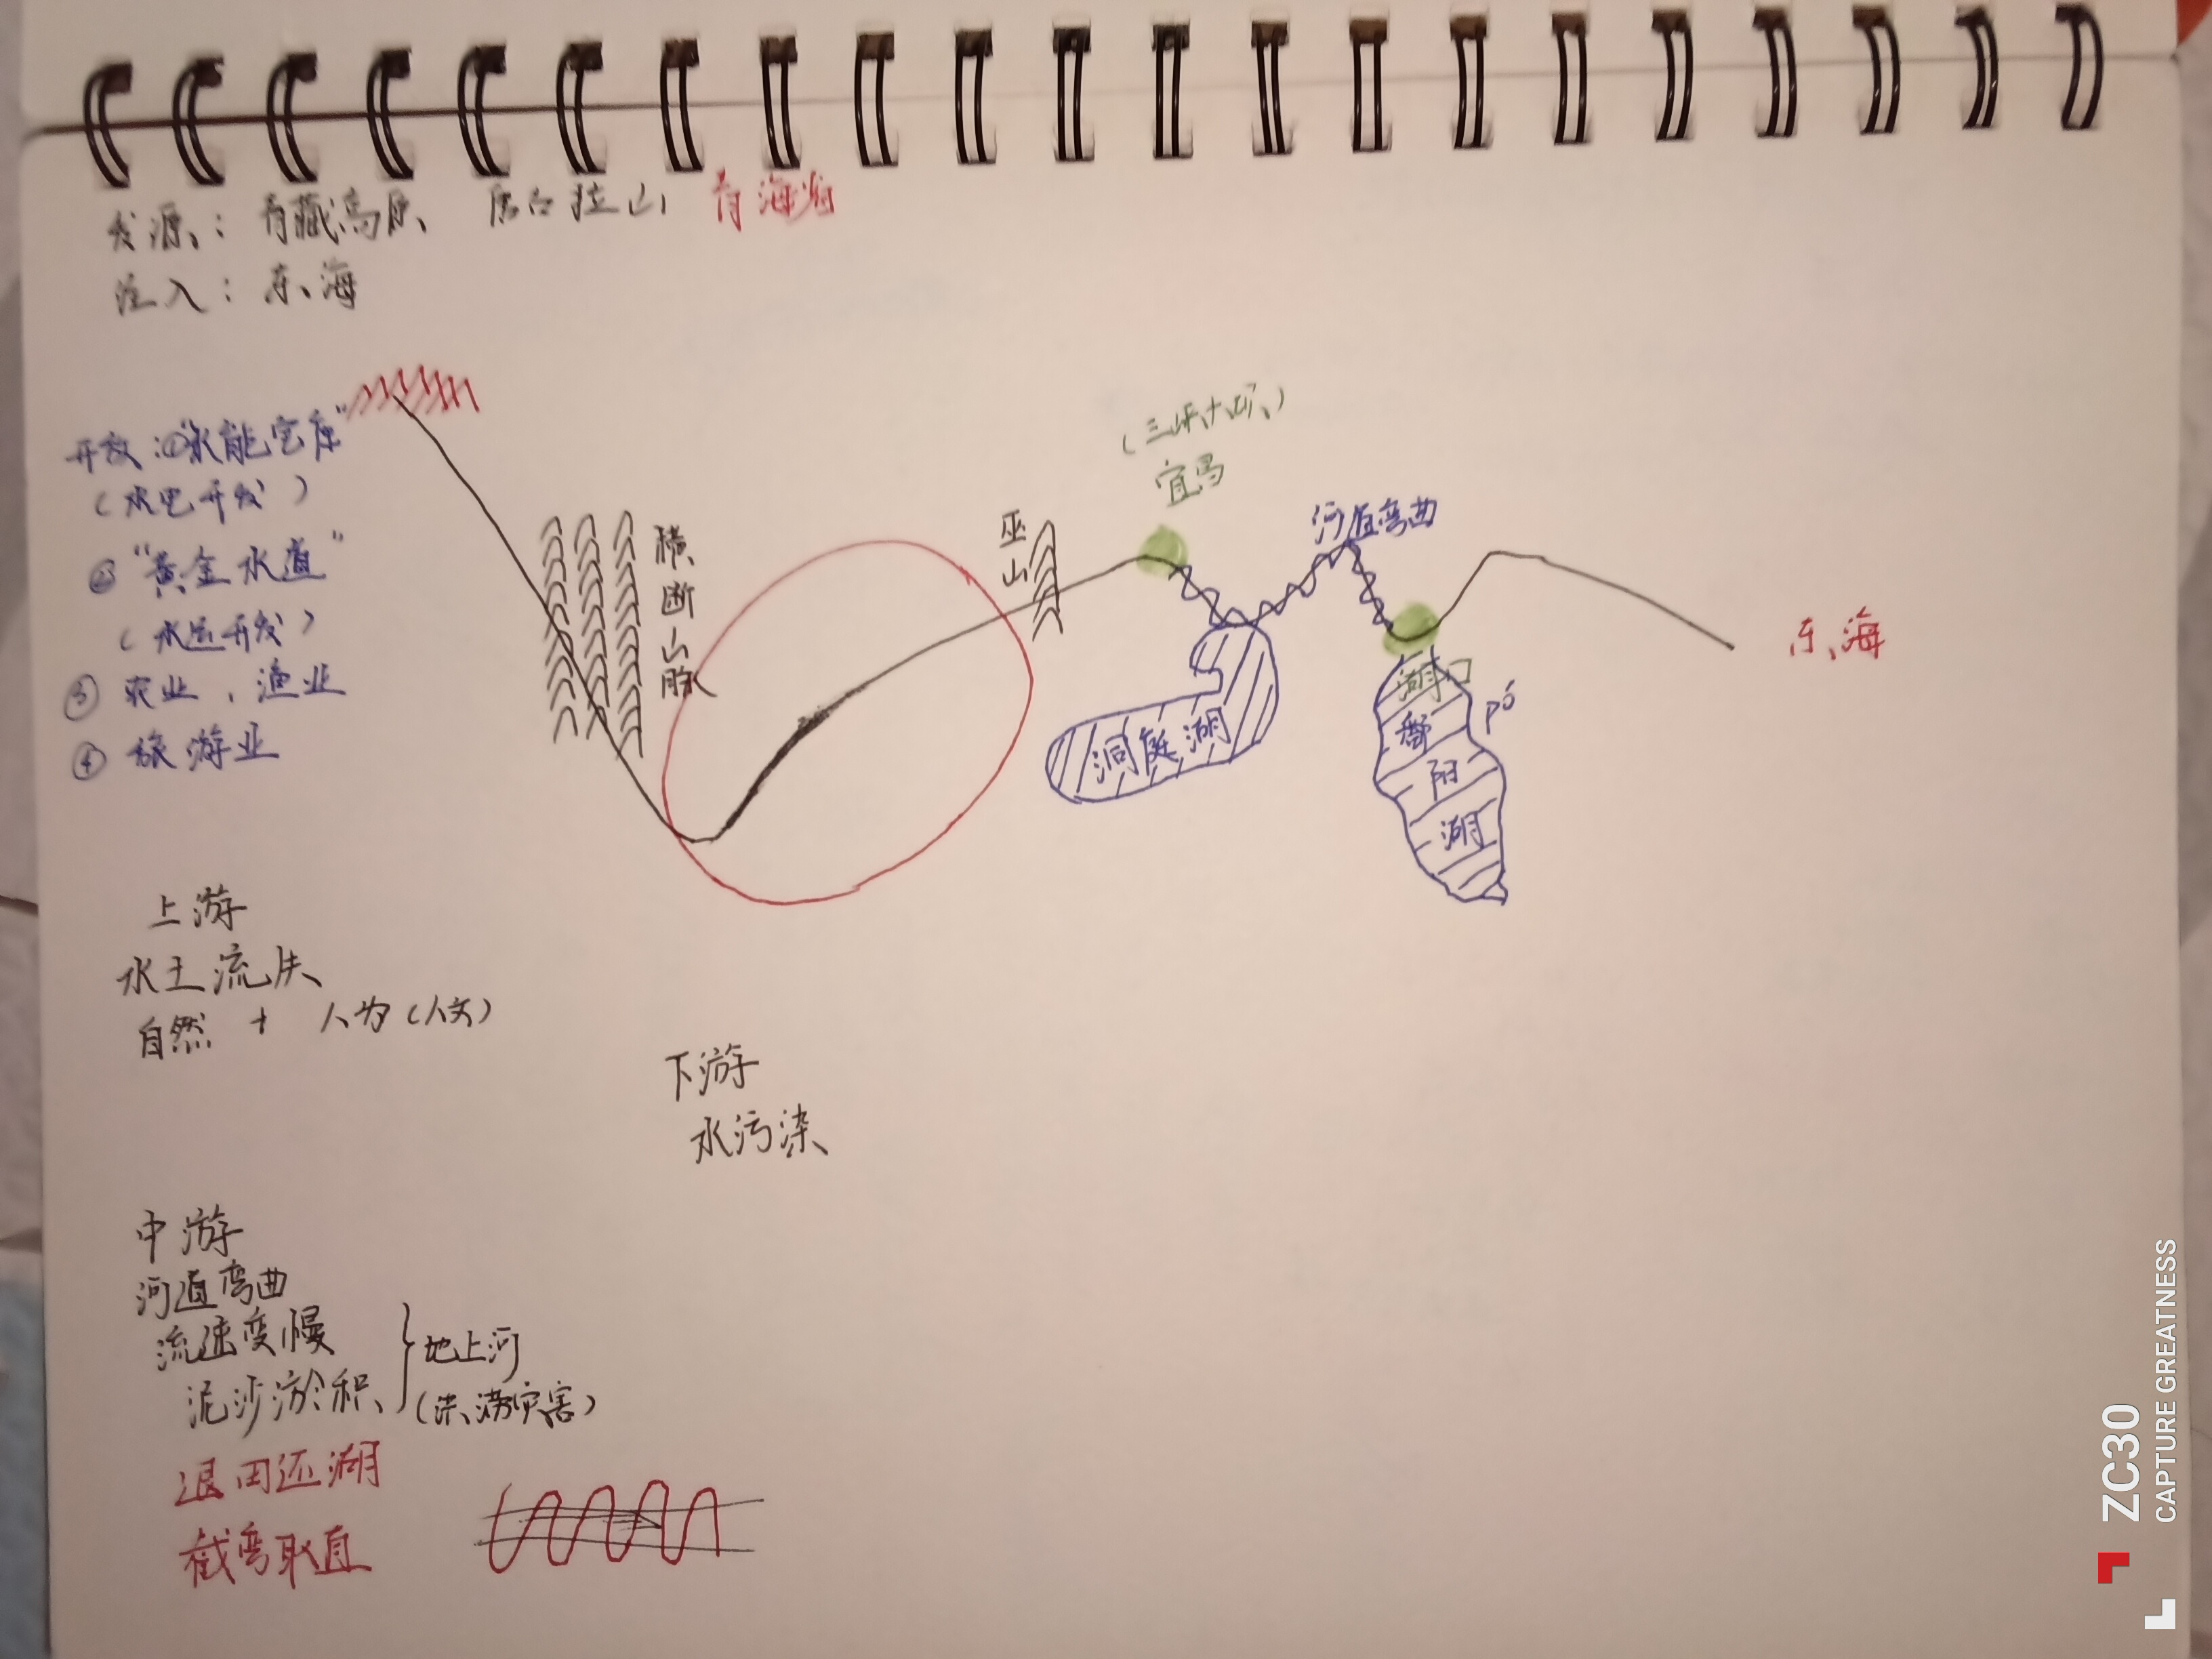 发源：青藏高原 唐古拉山 青海省
注入：东海
开放：①"水能宝库"
（水电开发）
②"黄金水道"
（水运开发）
③ 农业，渔业
④ 旅游业
横断山脉
巫山
（三峡大坝）
宜昌
河道弯曲
洞庭湖
湖口
鄱阳湖
pó
东海
上游
水土流失
自然 + 人为（人文）
下游
水污染
中游
河道弯曲
流速变慢
泥沙淤积
地上河
（洪涝灾害）
退田还湖
截弯取直
ZC30
CAPTURE GREATNESS